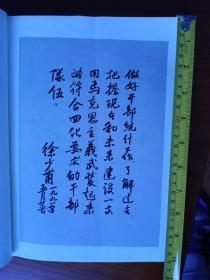 做好干部统计作了解过去
把握现在和未来建设一支
用马克思主义武装起来
的符合四化要求的干部
队伍。
徐少甫
一九九一年